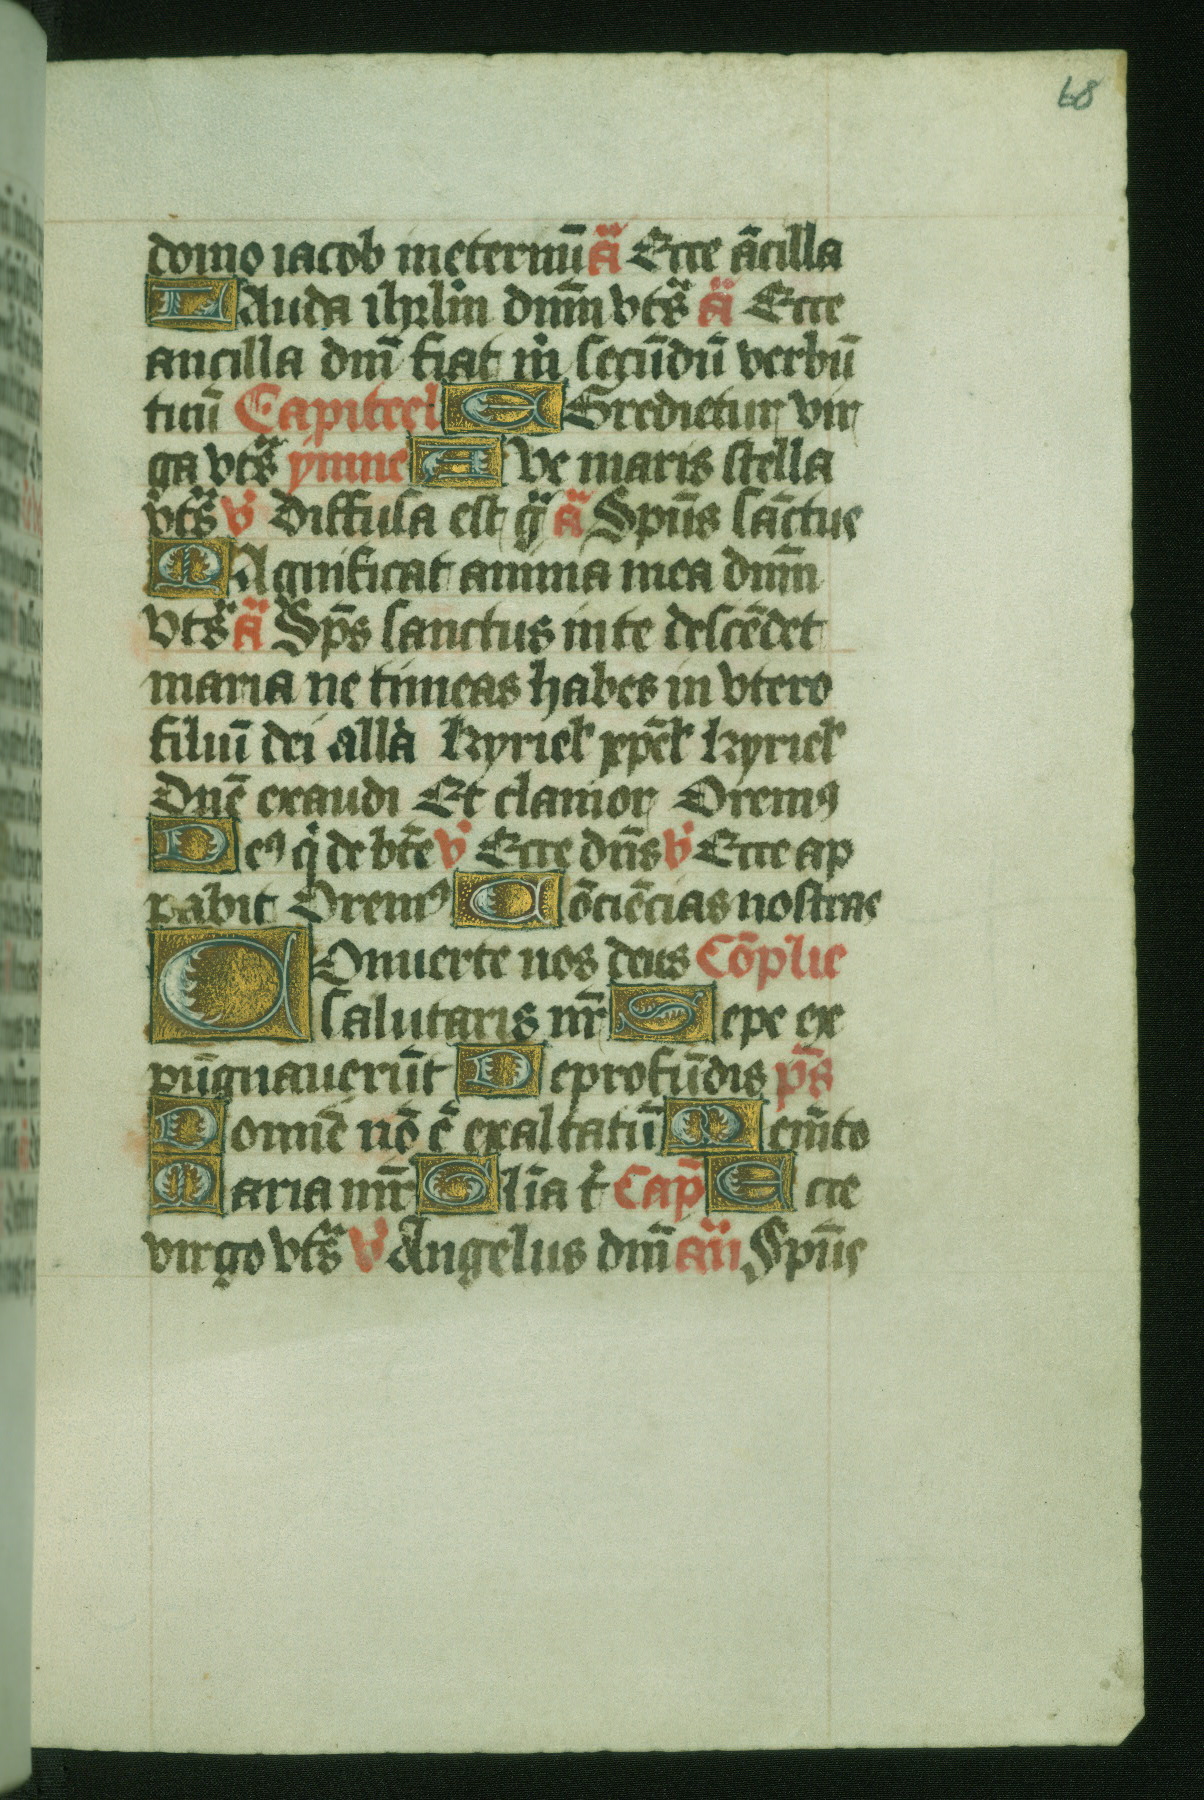 68
domo iacob ineternū ā Ecce ācilla
LAuda ihrlm dnm̄ vts̄ ā Ecce
ancilla dnī fiat m̊ secūdū verbū
tuū Capiteel EGredietur vir
ga vts̄ ymne AVe maris stella
vts̄ v̊ Diffusa est gͣ ā Spūs sāctus
MAgnificat anima mea dnm̄
vts̄ ā Sps̄ sanctus in te descēdet
maria ne timeas habes in vtero
filiū dei allā kyriel xp̄el kyriel
Dnē exaudi Et clamor Oremꝯ
Deꝯ q̇ de btē v̊ Ecce dn̄s v̊ Ecce ap
pabit Oremꝯ Cōciēcias nostras
COnuerte nos deus Cōplie
salutaris nr̄ Sepe ex
pūgnauerūt De profūdis ps̄
Domīe nō ē exaltatū Mem̄to
Maria mr̄ Glīa t̊ Cap̄ Ecce
virgo vts̄ v̊ Angelus dnī an̄ Spūs